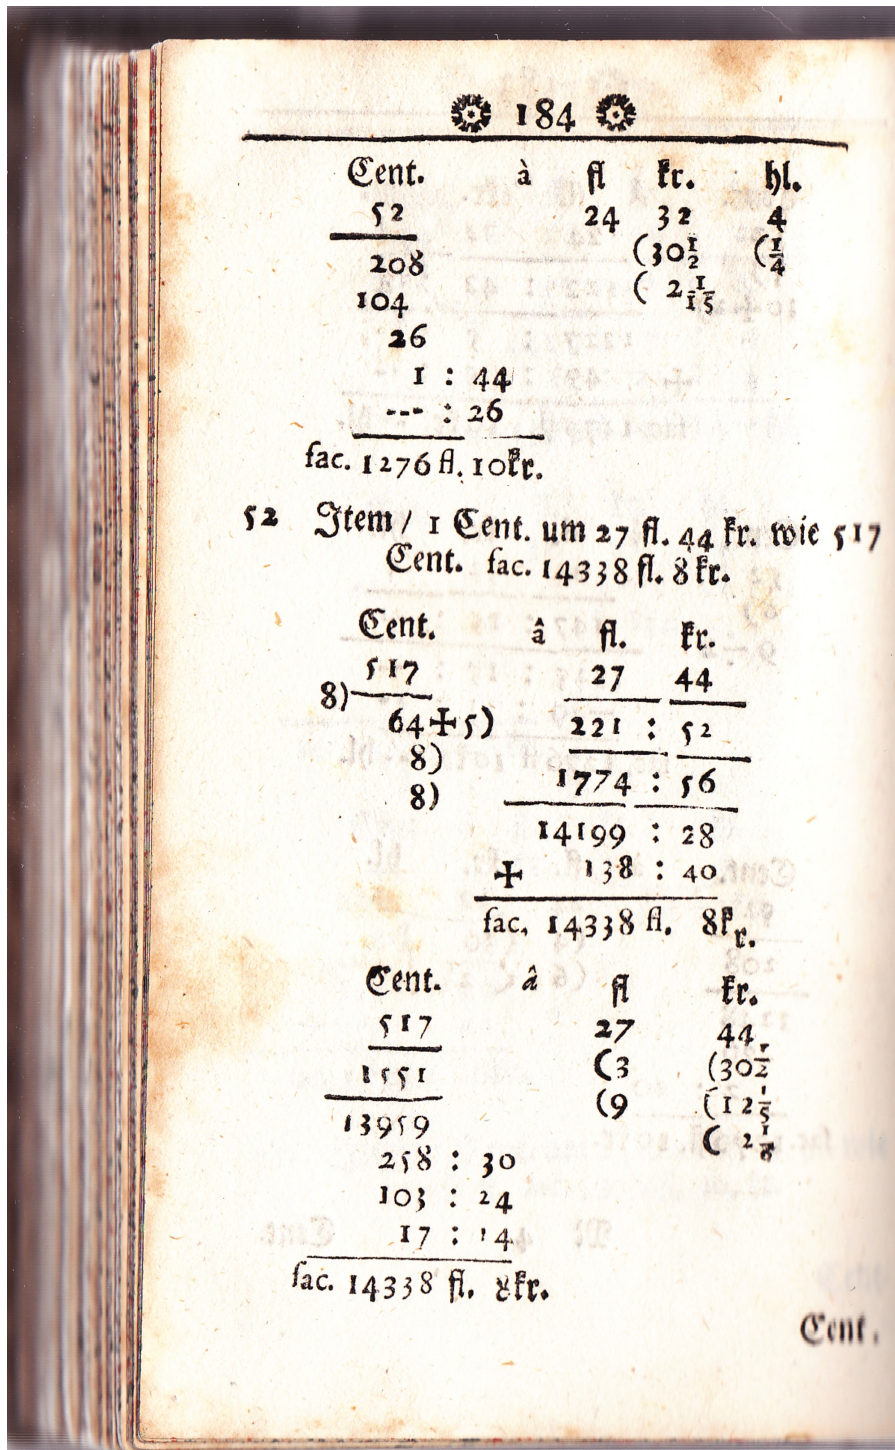 184
Cent. à fl kr. hl.
52 24 32 4
208 (30 1/2 (1/4
104 ( 2 1/15
26
1 : 44
--- : 26
fac. 1276 fl. 10kr.
52 Item / 1 Cent. um 27 fl. 44 kr. wie 517
Cent. fac. 14338 fl. 8 kr.
Cent. â fl. kr.
517 27 44
8)
64+5) 221 : 52
8)
1774 : 56
8)
14199 : 28
+ 138 : 40
fac. 14338 fl. 8kr.
Cent. â fl kr.
517 27 44
1551 (3 (30 1/2
(9 (12 1/5
13959 ( 2 1/8
258 : 30
103 : 24
17 : 14
fac. 14338 fl. 8kr.
Cent.